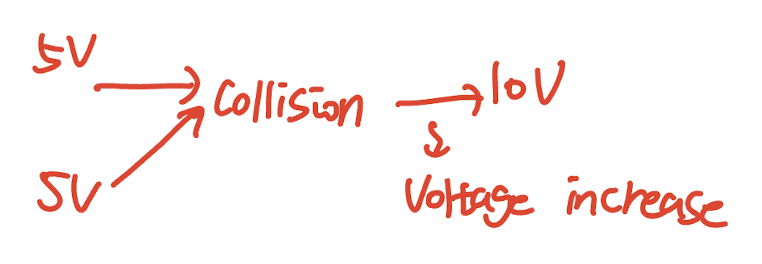 5V
Collision
10V
5V
Voltage increase